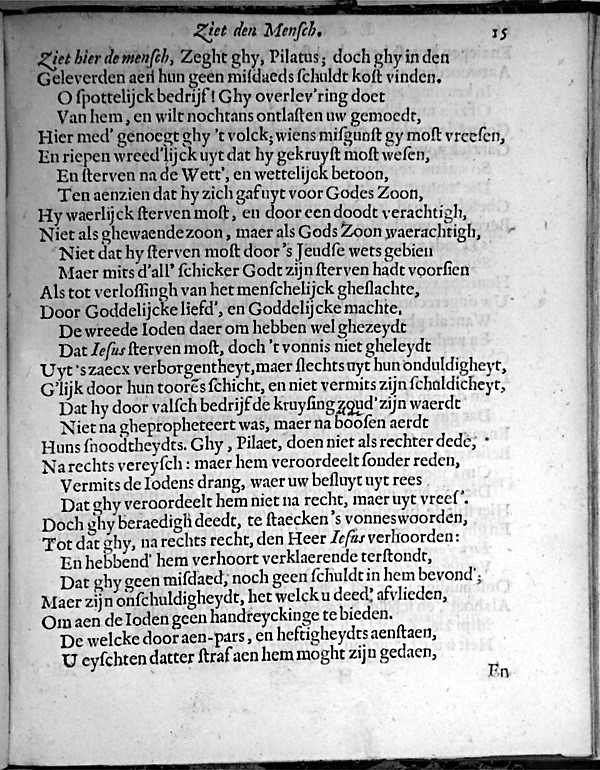 Ziet den Mensch. 15
Ziet hier de mensch, Zeght ghy, Pilatus; doch ghy in den
Geleverden aen hun geen misdaeds schuldt kost vinden.
O spottelijck bedrijf! Ghy overlev'ring doet
Van hem, en wilt nochtans ontlasten uw gemoedt,
Hier med' genoegt ghy 't volck; wiens misgunst gy most vreesen,
En riepen wreed'lijck uyt dat hy gekruyst most wesen,
En sterven na de Wett', en wettelijck betoon,
Ten aenzien dat hy zich gaf uyt voor Godes Zoon,
Hy waerlijck sterven most, en door een doodt verachtigh,
Niet als ghewaende zoon, maer als Gods Zoon waerachtigh,
Niet dat hy sterven most door 's Jeudse wets gebien
Maer mits d'all' schicker Godt zijn sterven hadt voorsien
Als tot verlossingh van het menschelijck gheslachte,
Door Goddelijcke liefd', en Goddelijcke machte.
De wreede Ioden daer om hebben wel ghezeydt
Dat Iesus sterven most, doch 't vonnis niet gheleydt
Uyt 's zaecx verborgentheyt, maer slechts uyt hun onduldigheyt,
G'lijk door hun toorēs schicht, en niet vermits zijn schuldicheyt,
Dat hy door valsch bedrijf de kruysing zoud' zijn waerdt
Niet na ghepropheteert was, maer na boosen aerdt
Huns snoodtheydts. Ghy, Pilaet, doen niet als rechter dede,
Na rechts vereysch: maer hem veroordeelt sonder reden,
Vermits de Iodens drang, waer uw besluyt uyt rees
Dat ghy veroordeelt hem niet na recht, maer uyt vrees'.
Doch ghy beraedigh deedt, te staecken 's vonneswoorden,
Tot dat ghy, na rechts recht, den Heer Iesus verhoorden:
En hebbend' hem verhoort verklaerende terstondt,
Dat ghy geen misdaed, noch geen schuldt in hem bevond';
Maer zijn onschuldigheydt, het welck u deed' afvlieden,
Om aen de Ioden geen handreyckinge te bieden.
De welcke door aen-pars, en heftigheydts aenstaen,
U eyschten datter straf aen hem moght zijn gedaen,
En